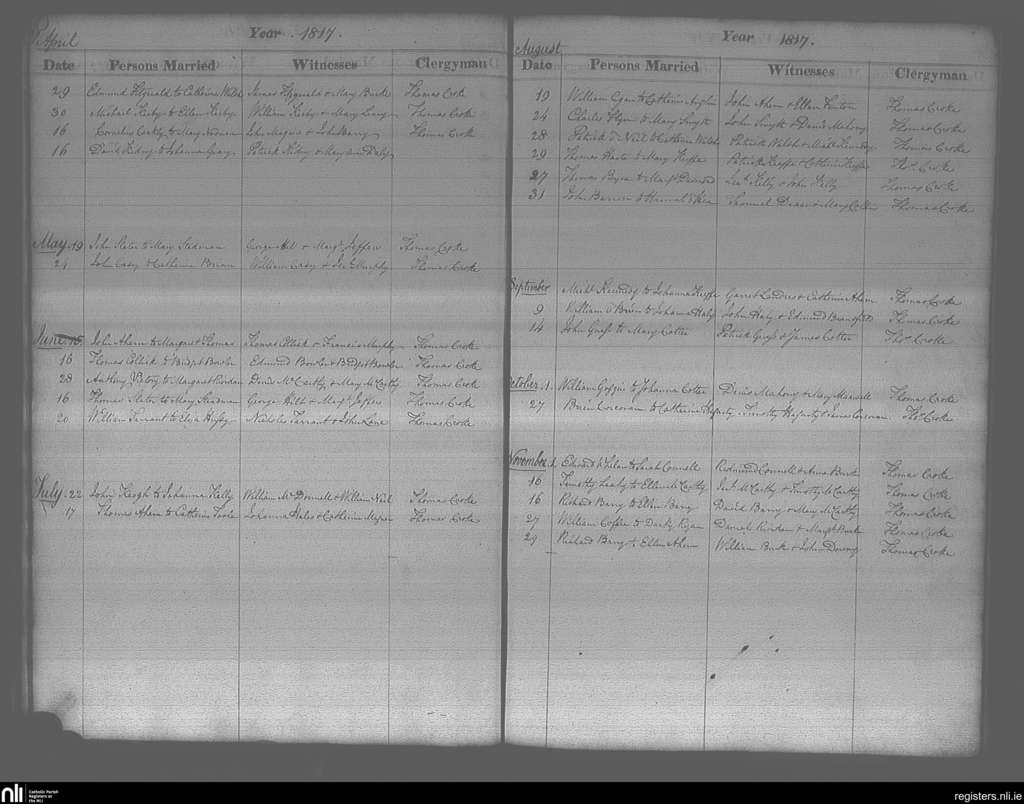 April
Year 1817.
Date Persons Married Witnesses Clergyman
29 Edmund Fitzgerald to Catherine Walsh James Fitzgerald & Mary Burke Thomas Croke
30 Michael Kirby to Ellen Kirby William Kirby & Mary Leary Thomas Croke
16 Cornelius to Mary John Magner & John Barry Thomas Croke
16 David to Johanna Geary Patrick & Mary Ann Daly
May 19 John Slater to Mary Steadman George Hill & Margt. Thomas Croke
24 John Casey to Catherine Brien William Casey & Murphy Thomas Croke
June 15 John Ahern to Margaret Thomas Thomas Ellick & Francis Murphy Thomas Croke
16 Thomas Ellick to Bridget Bowler Edmund Bowler & Bridget Bowler Thomas Croke
28 Anthony Victory to Margaret Riordan Denis McCarthy & Mary McCarthy Thomas Croke
16 Thomas Slater to Mary Steadman George Hill & Margt. Jeffers Thomas Croke
20 William Tarrant to Eliza Nicholas Tarrant & John Lane Thomas Croke
July 22 John Keogh to Johanna Kelly William McDonnell & William Neil Thomas Croke
17 Thomas Ahern to Catherine Toole Johanna Hales & Catherine Thomas Croke
August
Year 1817.
Date Persons Married Witnesses Clergyman
19 William to Catherine John Ahern & Ellen Thomas Croke
24 Charles Flynn to Mary Smyth John Smyth & Denis Mahony Thomas Croke
28 Patrick O'Neil to Catherine Walsh Patrick Walsh & Michl. Kennedy Thomas Croke
29 Thomas to Mary Keeffe Patrick Keeffe & Catherine Keeffe Thos. Croke
27 Thomas Byrne to Margt. Kelly & John Kelly Thomas Croke
31 John to Hannah Shea Samuel & Mary Collins Thomas Croke
September Michl. Kennedy to Johanna Keeffe Garret Landers & Catherine Ahern Thomas Croke
9 William O'Brien to Johanna Haly John Haly & Edmund Bransfield Thomas Croke
14 John to Mary Cotter Patrick & James Cotter Thos. Croke
October 1. William Goggin to Johanna Cotter Denis Mahony & Mary Maxwell Thomas Croke
27 Brien Corcoran to Catherine Hegarty Timothy Hegarty & James Corcoran Thos. Croke
November 1 Edward Whelan to Sarah Connell Redmond Connell & Anna Burke Thomas Croke
16 Timothy Leahy to Ellen McCarthy McCarthy & Timothy McCarthy Thomas Croke
16 Richard Barry to Ellen Barry David Barry & Mary McCarthy Thomas Croke
27 William to Darky Ryan Daniel Riordan & Margt. Burke Thomas Croke
29 Richard Barry to Ellen Ahern William Burke & John Downey Thomas Croke
nli Catholic Parish Registers at the NLI
registers.nli.ie